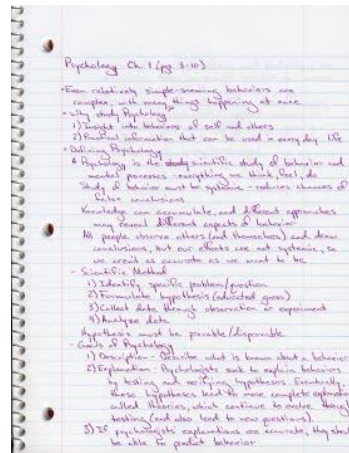 Psychology Ch. 1 (pg 3-10)
• Even relatively simple-seeming behaviors are
complex, with many things happening at once
• Why study Psychology
1) Insight into behaviors of self and others
2) Practical information that can be used in every day life
• Defining Psychology
Psychology is the scientific study of behavior and
mental processes - everything we think, feel, do
Study of behavior must be systemic - reduces chances of
false conclusions
Knowledge can accumulate, and different approaches
may reveal different aspects of behavior
All people observe others (and themselves) and draw
conclusions, but our efforts are not systemic, so
we aren't as accurate as we want to be
- Scientific Method
1) Identify specific problem/question
2) Formulate hypothesis (educated guess)
3) Collect data through observation or experiment
4) Analyze data
Hypothesis must be provable/disprovable
- Goals of Psychology
1) Description - Describe what is known about a behavior
2) Explanation - Psychologists seek to explain behaviors
by testing and verifying hypotheses. Eventually,
these hypotheses lead to more complete explanations
called theories, which continue to evolve through
testing (and also lead to new questions).
3) If psychologists explanations are accurate, they should
be able to predict behavior